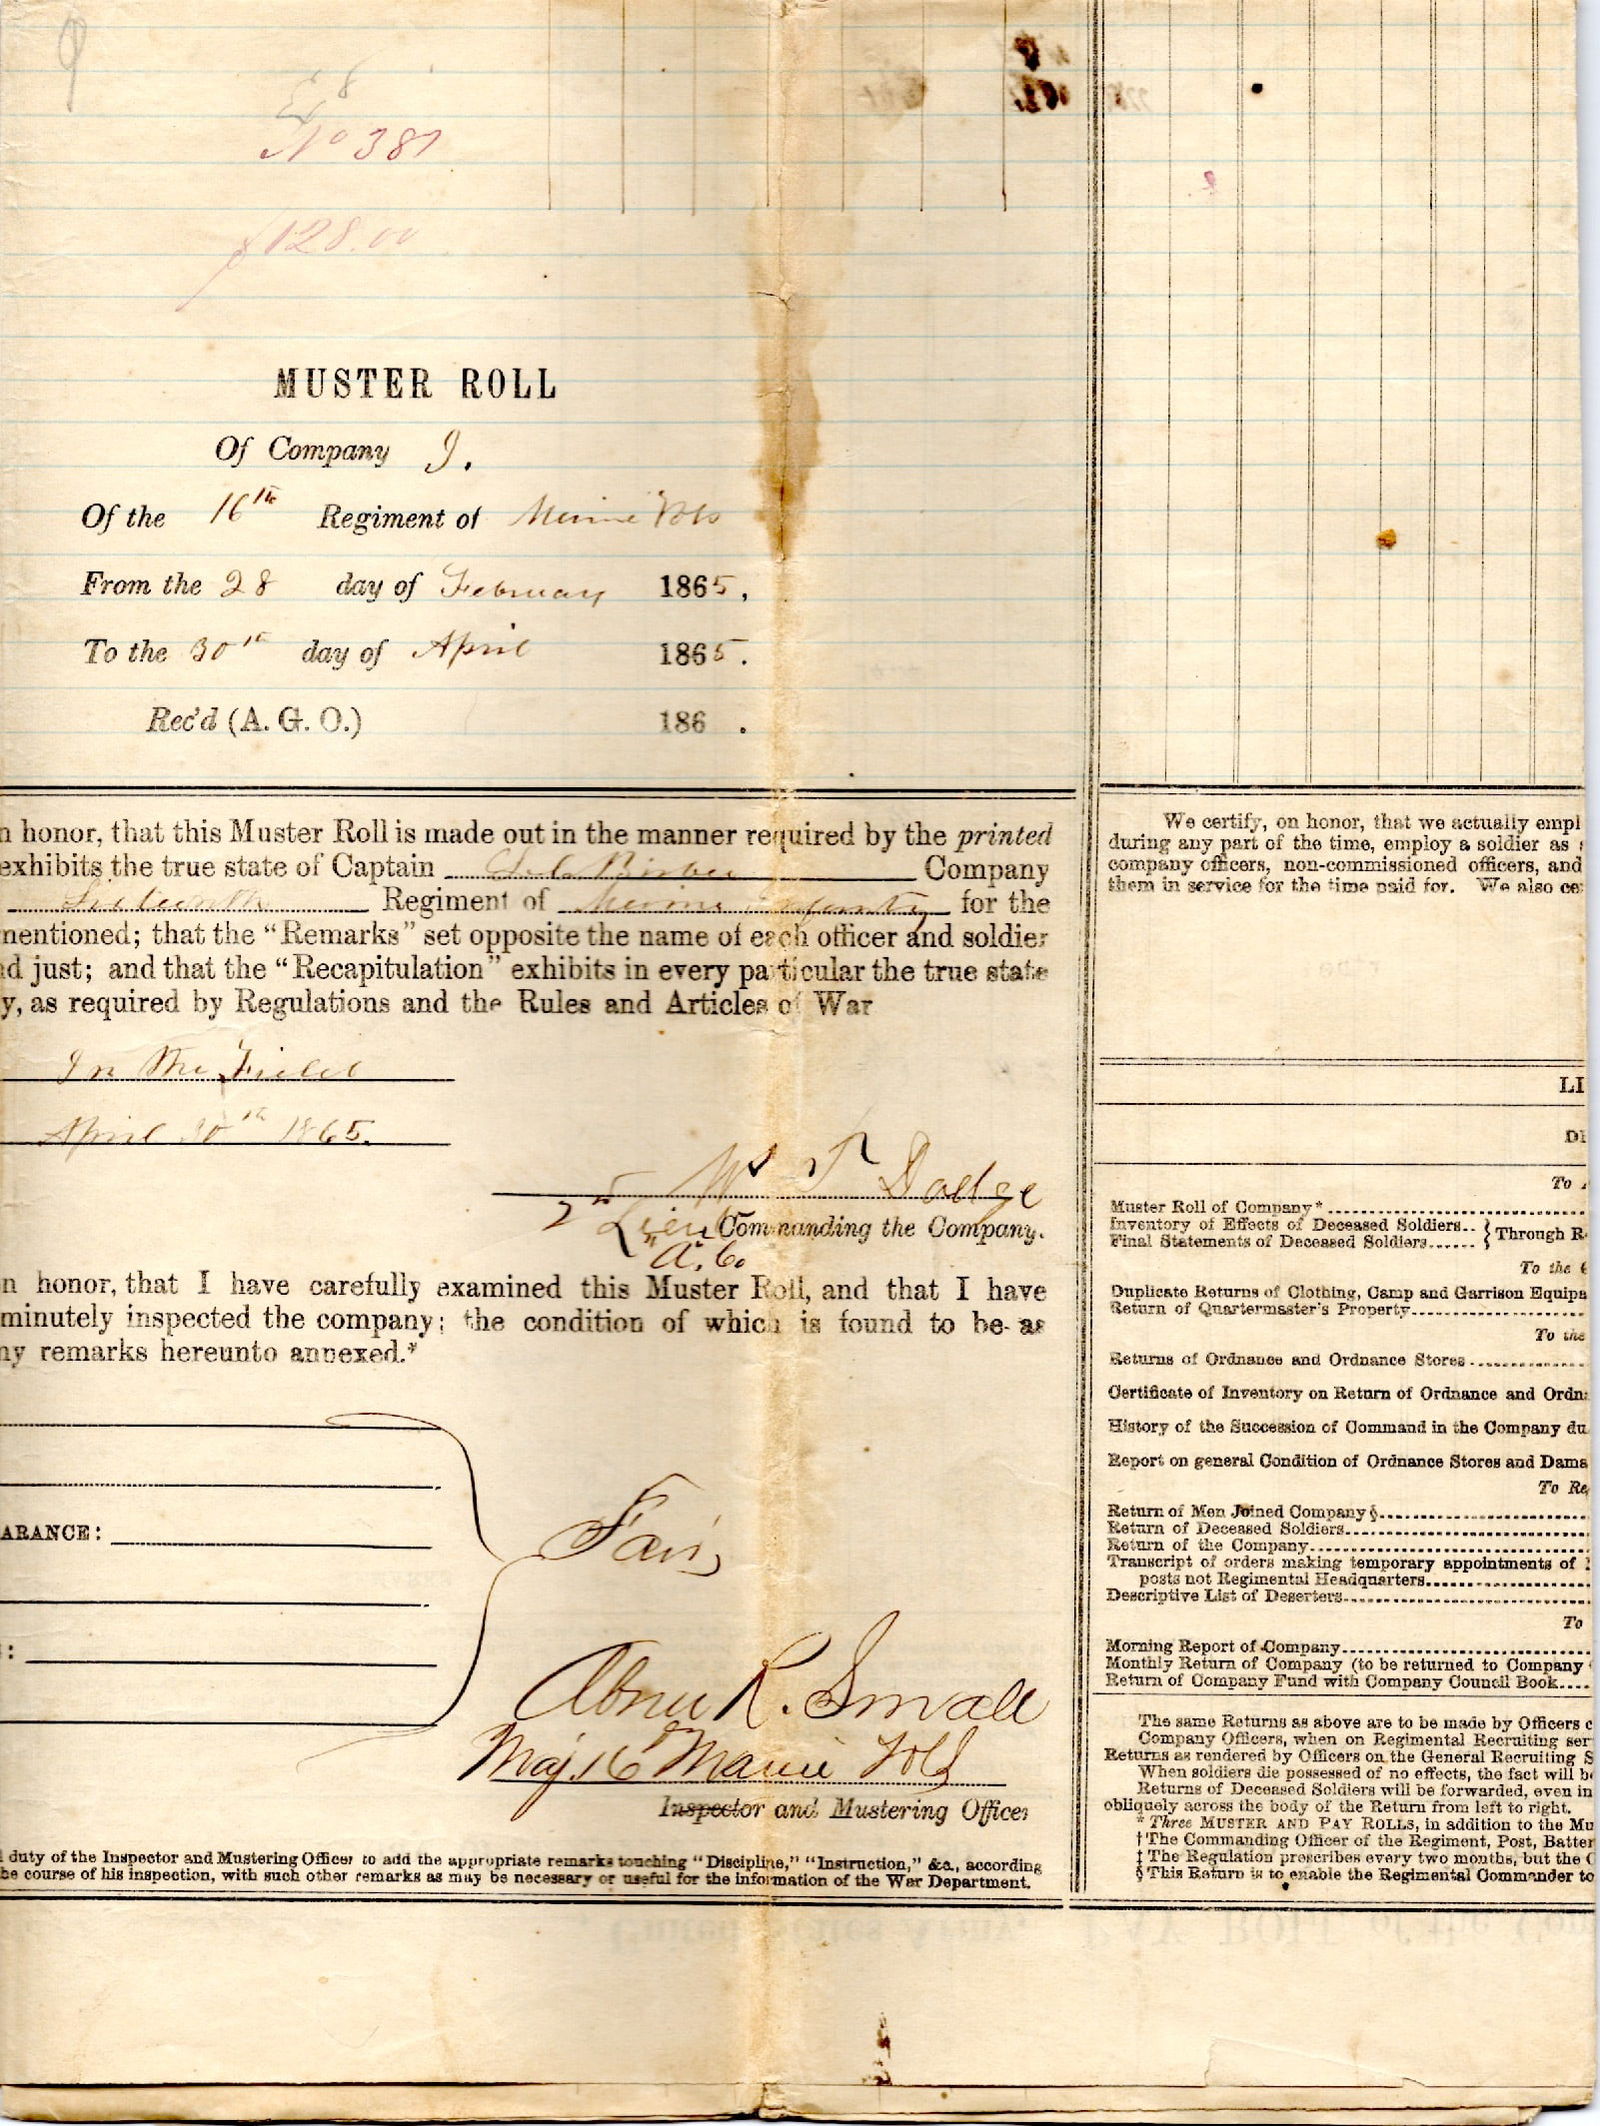 No 381
$128.00
MUSTER ROLL
Of Company I.
Of the 16th Regiment of Maine Vols
From the 28 day of February 1865,
To the 30th day of April 1865.
Rec'd (A. G. O.) 186 .
n honor, that this Muster Roll is made out in the manner required by the printed
exhibits the true state of Captain Company
Sixteenth Regiment of Maine Infantry for the
mentioned; that the “Remarks” set opposite the name of each officer and soldier
d just; and that the “Recapitulation” exhibits in every particular the true state
y, as required by Regulations and the Rules and Articles of War
In the Field
April 30th 1865.
Wm T Dodge
2nd Lieut Commanding the Company.
n honor, that I have carefully examined this Muster Roll, and that I have
minutely inspected the company; the condition of which is found to be as
ny remarks hereunto annexed.*
ARANCE:
Fair,
:
Abner R. Small
Maj. 16 Maine Vols
Inspector and Mustering Officer
duty of the Inspector and Mustering Officer to add the appropriate remarks touching “Discipline,” “Instruction,” &c., according
he course of his inspection, with such other remarks as may be necessary or useful for the information of the War Department.
We certify, on honor, that we actually empl
during any part of the time, employ a soldier as
company officers, non-commissioned officers, and
them in service for the time paid for. We also ce
LI
DI
To
Muster Roll of Company*
Inventory of Effects of Deceased Soldiers.. } Through R
Final Statements of Deceased Soldiers......
To the
Duplicate Returns of Clothing, Camp and Garrison Equipa
Return of Quartermaster's Property
To the
Returns of Ordnance and Ordnance Stores
Certificate of Inventory on Return of Ordnance and Ordn
History of the Succession of Command in the Company du
Report on general Condition of Ordnance Stores and Dama
To Re
Return of Men Joined Company§
Return of Deceased Soldiers
Return of the Company
Transcript of orders making temporary appointments of
posts not Regimental Headquarters
Descriptive List of Deserters
To
Morning Report of Company
Monthly Return of Company (to be returned to Company
Return of Company Fund with Company Council Book....
The same Returns as above are to be made by Officers c
Company Officers, when on Regimental Recruiting ser
Returns as rendered by Officers on the General Recruiting S
When soldiers die possessed of no effects, the fact will b
Returns of Deceased Soldiers will be forwarded, even in
obliquely across the body of the Return from left to right.
* Three MUSTER AND PAY ROLLS, in addition to the Mu
† The Commanding Officer of the Regiment, Post, Batter
‡ The Regulation prescribes every two months, but the C
§ This Return is to enable the Regimental Commander to